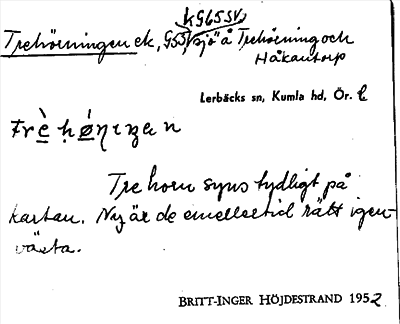 kG65SV,
Trehörningen ek, G55, sjö å Trehörning och
Håkantorp
Lerbäcks sn, Kumla hd, Ör. l
Tre horn syns tydligt på
kartan. Nu är de emellertid rätt igen-
växta.
BRITT-INGER HÖJDESTRAND 1952